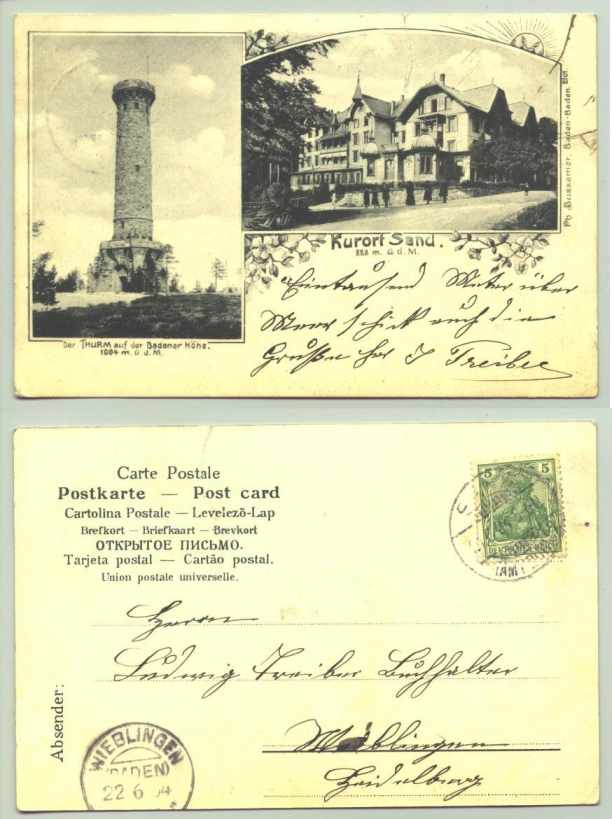 Der THURM auf der Badener Höhe.
1004 m. ü. d. M.
Kurort Sand.
828 m. ü. d. M.
Baden-Baden
Eintausend Meter über
Meer schick euch die
Grüße her J Treiber
Carte Postale
Postkarte — Post card
Cartolina Postale — Levelezõ-Lap
Brefkort — Briefkaart — Brevkort
ОТКРЫТОЕ ПИСЬМО.
Tarjeta postal — Cartão postal.
Union postale universelle.
5 5
DEUTSCHES REICH
Herrn
Ludwig Treiber Buchhalter
Wieblingen
Heidelberg
Absender:
WIEBLINGEN
(BADEN)
22 6 04